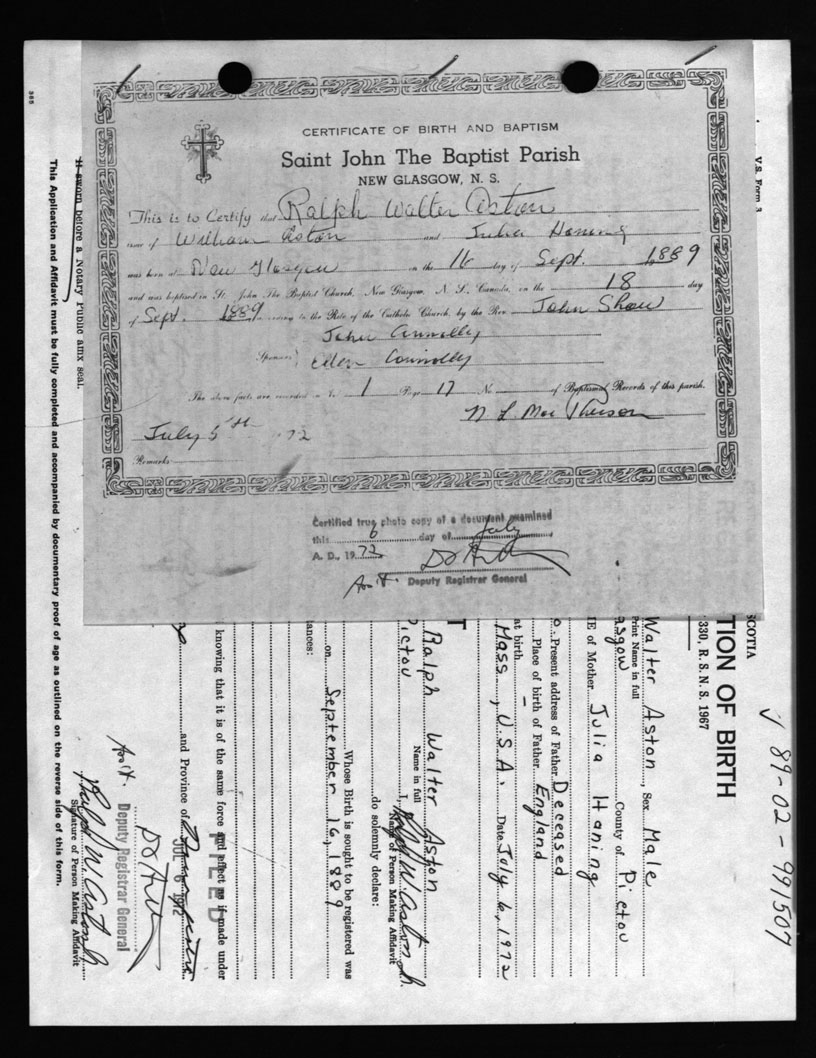 CERTIFICATE OF BIRTH AND BAPTISM
Saint John The Baptist Parish
NEW GLASGOW, N. S.
This is to Certify that Ralph Walter Aston
issue of William Aston and Julia Honing
was born at New Glasgow on the 16 day of Sept. 1889
and was baptised in St. John The Baptist Church, New Glasgow, N. S., Canada, on the 18 day
of Sept. 1889 according to the Rite of the Catholic Church, by the Rev. John Shaw
John Connolly
Sponsors
Ellen Connolly
The above facts are recorded in 1 Page 17 No of Baptismal Records of this parish.
N L MacPherson
July 5th 72
Remarks
Certified true photo copy of a document examined
this 6 day of July
A. D., 1972
Deputy Registrar General
V 89-02-991507
V.S. Form 3
SCOTIA
TION OF BIRTH
330, R. S. N. S. 1967
Walter Aston, Sex Male
Print Name in full
asgow County of Pictou
E of Mother Julia Haning
Present address of Father Deceased
Place of birth of Father England
at birth
Mass, U.S.A. Date July 6, 1972
T
Ralph Walter Aston
Name in full
Pictou I, Ralph W. Aston
Name of Person Making Affidavit
do solemnly declare:
Whose Birth is sought to be registered was
on September 16, 1889
ances:
knowing that it is of the same force and effect as if made under
FILED
and Province of
JUL 6 1972
Deputy Registrar General
Ralph W. Aston
Signature of Person Making Affidavit
If sworn before a Notary Public amx seal.
This Application and Affidavit must be fully completed and accompanied by documentary proof of age as outlined on the reverse side of this form.